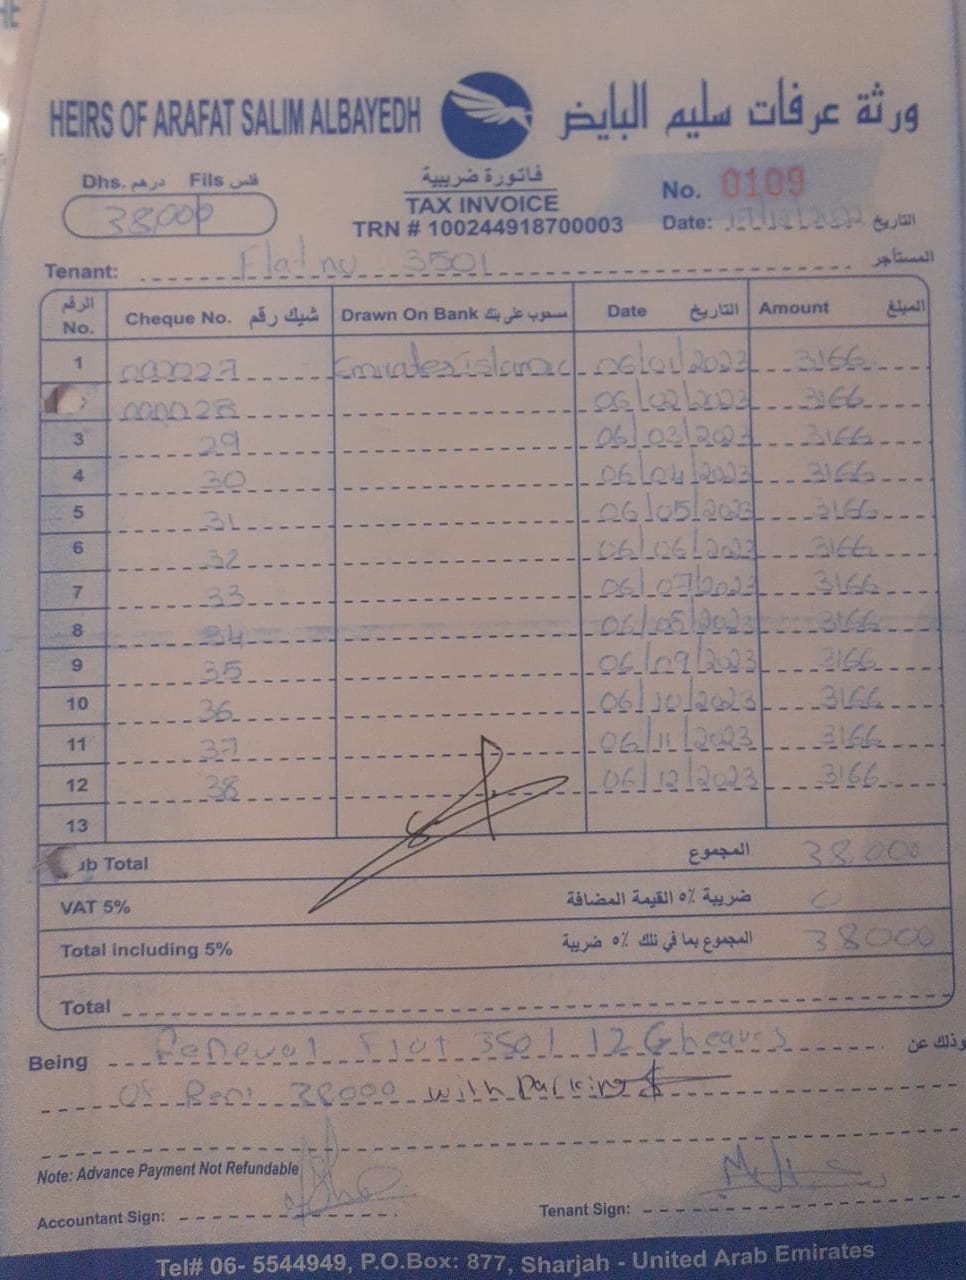 HEIRS OF ARAFAT SALIM ALBAYEDH ورثة عرفات سليم البايض
Dhs. درهم Fils فلس
38,000
فاتورة ضريبية
TAX INVOICE
TRN # 100244918700003
No. 0109
Date: التاريخ
Tenant: Flat no 3501 المستأجر
الرقم No. Cheque No. شيك رقم Drawn On Bank مسحوب على بنك Date التاريخ Amount المبلغ
1 000027 Emirates islamic 06/01/2023 3166
000028 06/02/2023 3166
3 29 06/03/2023 3166
4 30 06/04/2023 3166
5 31 06/05/2023 3166
6 32 06/06/2023 3166
7 33 06/07/2023 3166
8 34 3166
9 35 06/09/2023 3166
10 36 06/10/2023 3166
11 37 06/11/2023 3166
12 38 06/12/2023 3166
13
ub Total المجموع 38,000
VAT 5% ضريبة ٥% القيمة المضافة 0
Total including 5% المجموع بما في ذلك ٥% ضريبة 38000
Total
Being Renewal Flat 3501 12 وذلك عن
Of Rent 38000 with parking
Note: Advance Payment Not Refundable
Accountant Sign: Tenant Sign:
Tel# 06- 5544949, P.O.Box: 877, Sharjah - United Arab Emirates